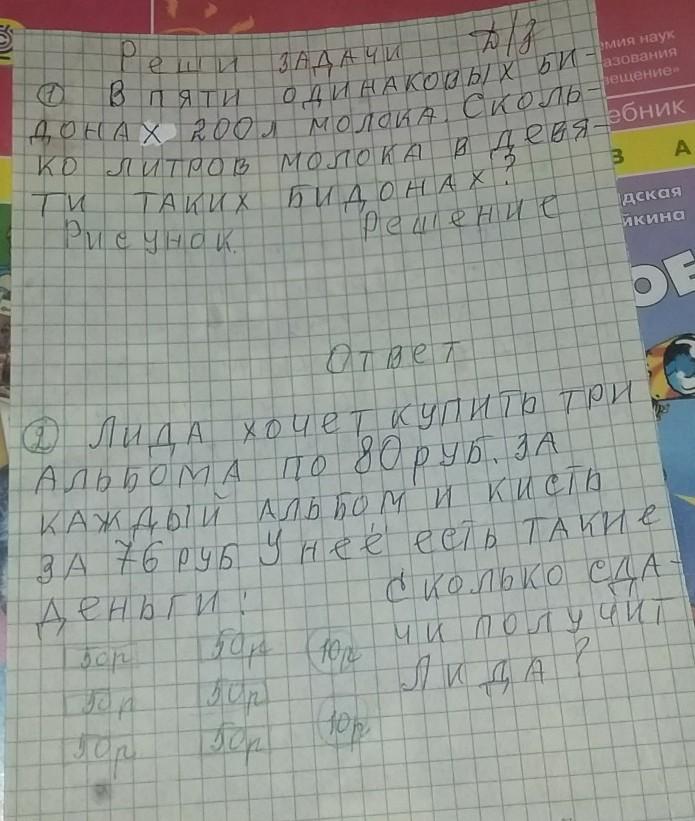 Реши задачи Д/з
① В пяти одинаковых би-
донах 200л молока. Сколь-
ко литров молока в девя-
ти таких бидонах?
Рисунок. Решение
Ответ
② Лида хочет купить три
альбома по 80 руб. за
каждый альбом и кисть
за 76 руб У неё есть такие
деньги: Сколько сда-
чи получит
Лида?
50р 50р 10р
50р 50р
10р
50р 50р
мия наук
азования
ещение»
ебник
В А
дская
йкина
ОЕ